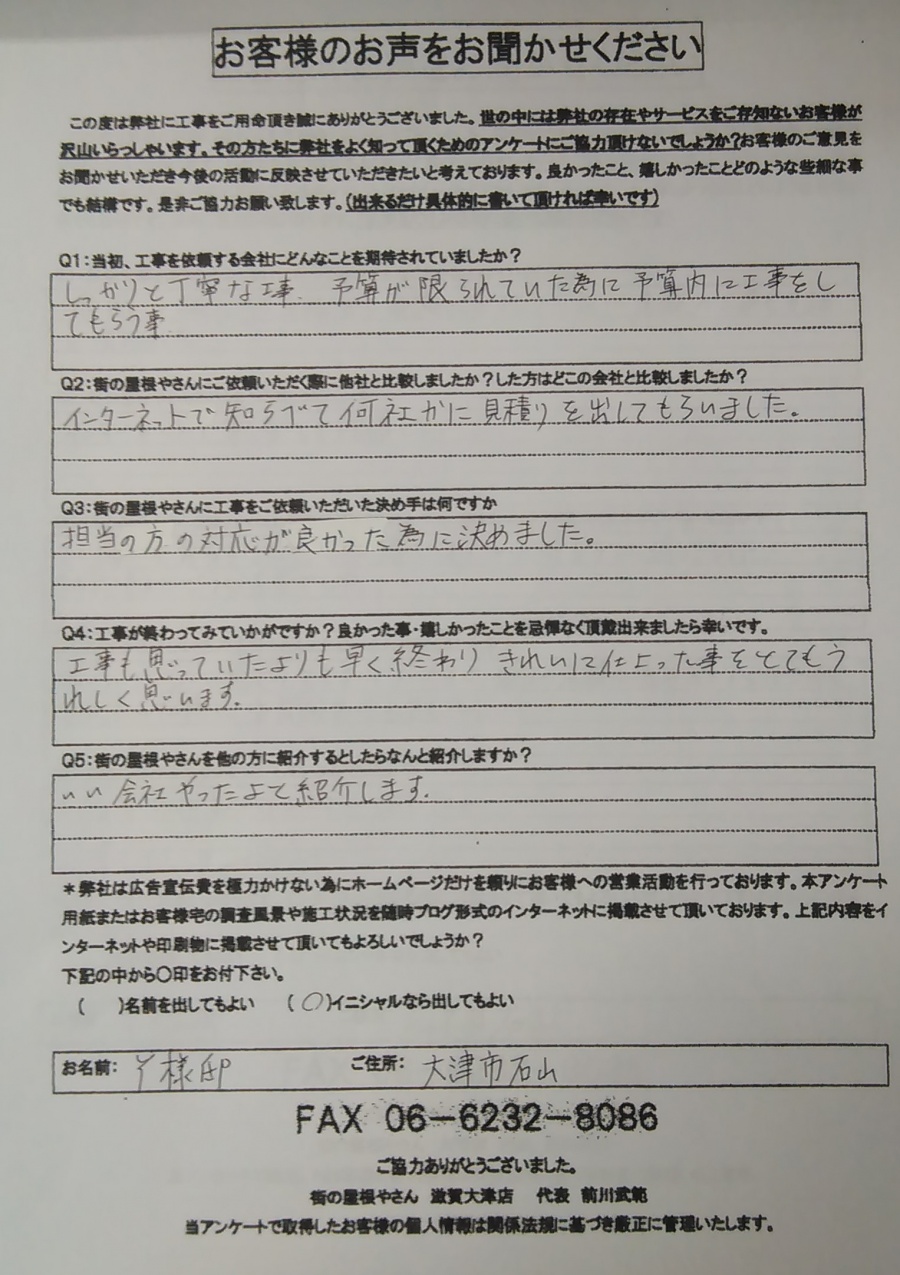 お客様のお声をお聞かせください
この度は弊社に工事をご用命頂き誠にありがとうございました。世の中には弊社の存在やサービスをご存知ないお客様が
沢山いらっしゃいます。その方たちに弊社をよく知って頂くためのアンケートにご協力頂けないでしょうか?お客様のご意見を
お聞かせいただき今後の活動に反映させていただきたいと考えております。良かったこと、嬉しかったことどのような些細な事
でも結構です。是非ご協力お願い致します。(出来るだけ具体的に書いて頂ければ幸いです)
Q1:当初、工事を依頼する会社にどんなことを期待されていましたか?
しっかりと丁寧な工事. 予算が限られていた為に予算内に工事をし
てもらう事
Q2:街の屋根やさんにご依頼いただく際に他社と比較しましたか?した方はどこの会社と比較しましたか?
インターネットで知らべて何社かに見積りを出してもらいました。
Q3:街の屋根やさんに工事をご依頼いただいた決め手は何ですか
担当の方の対応が良かった為に決めました。
Q4:工事が終わってみていかがですか?良かった事・嬉しかったことを忌憚なく頂戴出来ましたら幸いです。
工事も思っていたよりも早く終わり きれいに仕上った事をとてもう
れしく思います.
Q5:街の屋根やさんを他の方に紹介するとしたらなんと紹介しますか?
いい会社やったよと紹介します.
*弊社は広告宣伝費を極力かけない為にホームページだけを頼りにお客様への営業活動を行っております。本アンケート
用紙またはお客様宅の調査風景や施工状況を随時ブログ形式のインターネットに掲載させて頂いております。上記内容をイ
ンターネットや印刷物に掲載させて頂いてもよろしいでしょうか?
下記の中から○印をお付下さい。
( )名前を出してもよい (○)イニシャルなら出してもよい
お名前: Y様邸 ご住所: 大津市石山
FAX 06-6232-8086
ご協力ありがとうございました。
街の屋根やさん 滋賀大津店 代表 前川武範
当アンケートで取得したお客様の個人情報は関係法規に基づき厳正に管理いたします。